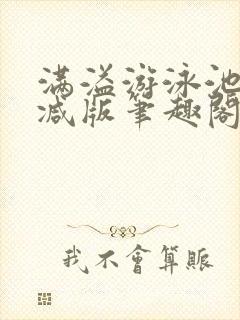 满溢游泳池
减版笔趣閣
我不會算賬